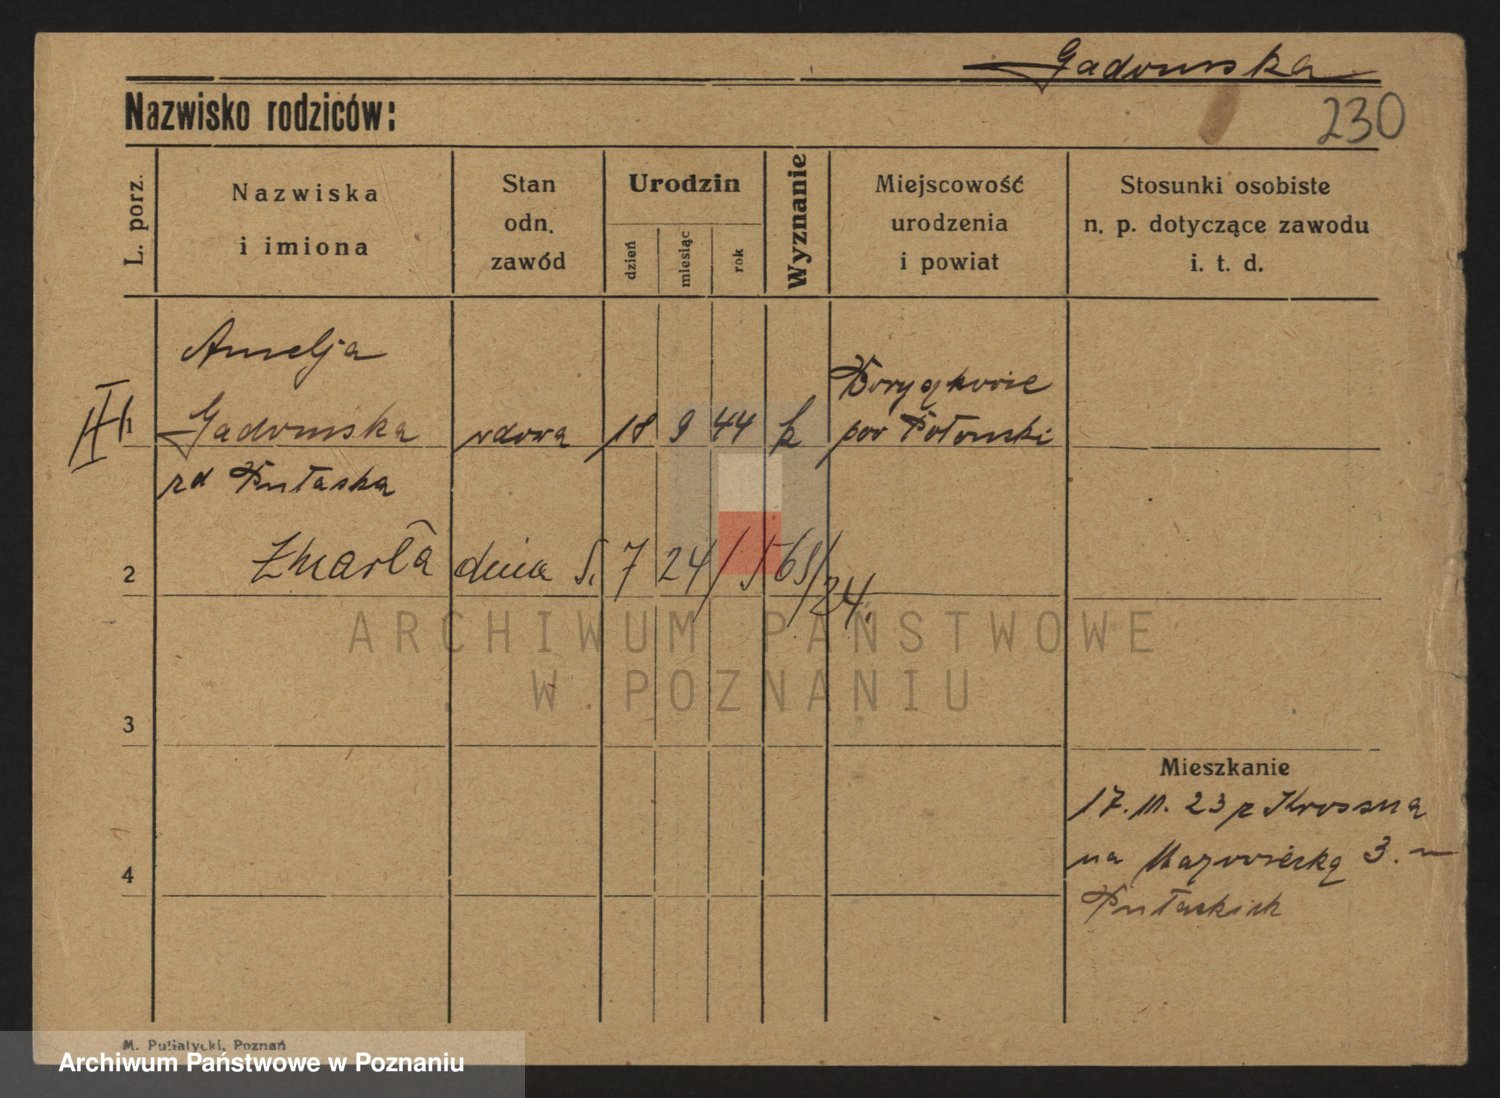 Gadomska
Nazwisko rodziców:
230
L. porz.
Nazwiska
i imiona
Stan
odn.
zawód
Urodzin
dzień
miesiąc
rok
Wyznanie
Miejscowość
urodzenia
i powiat
Stosunki osobiste
n. p. dotyczące zawodu
i. t. d.
Amelja
III
1 Gadomska wdowa 18 9 44 k
pow
rd Pułaska
2 Zmarła dnia 5. 7 24
24.
3
Mieszkanie
17. 11. 23 z Krosna
na Mazowiecką 3. -
4
Pułaskich
M. Putiatycki, Poznań
ARCHIWUM PAŃSTWOWE
W POZNANIU
Archiwum Państwowe w Poznaniu